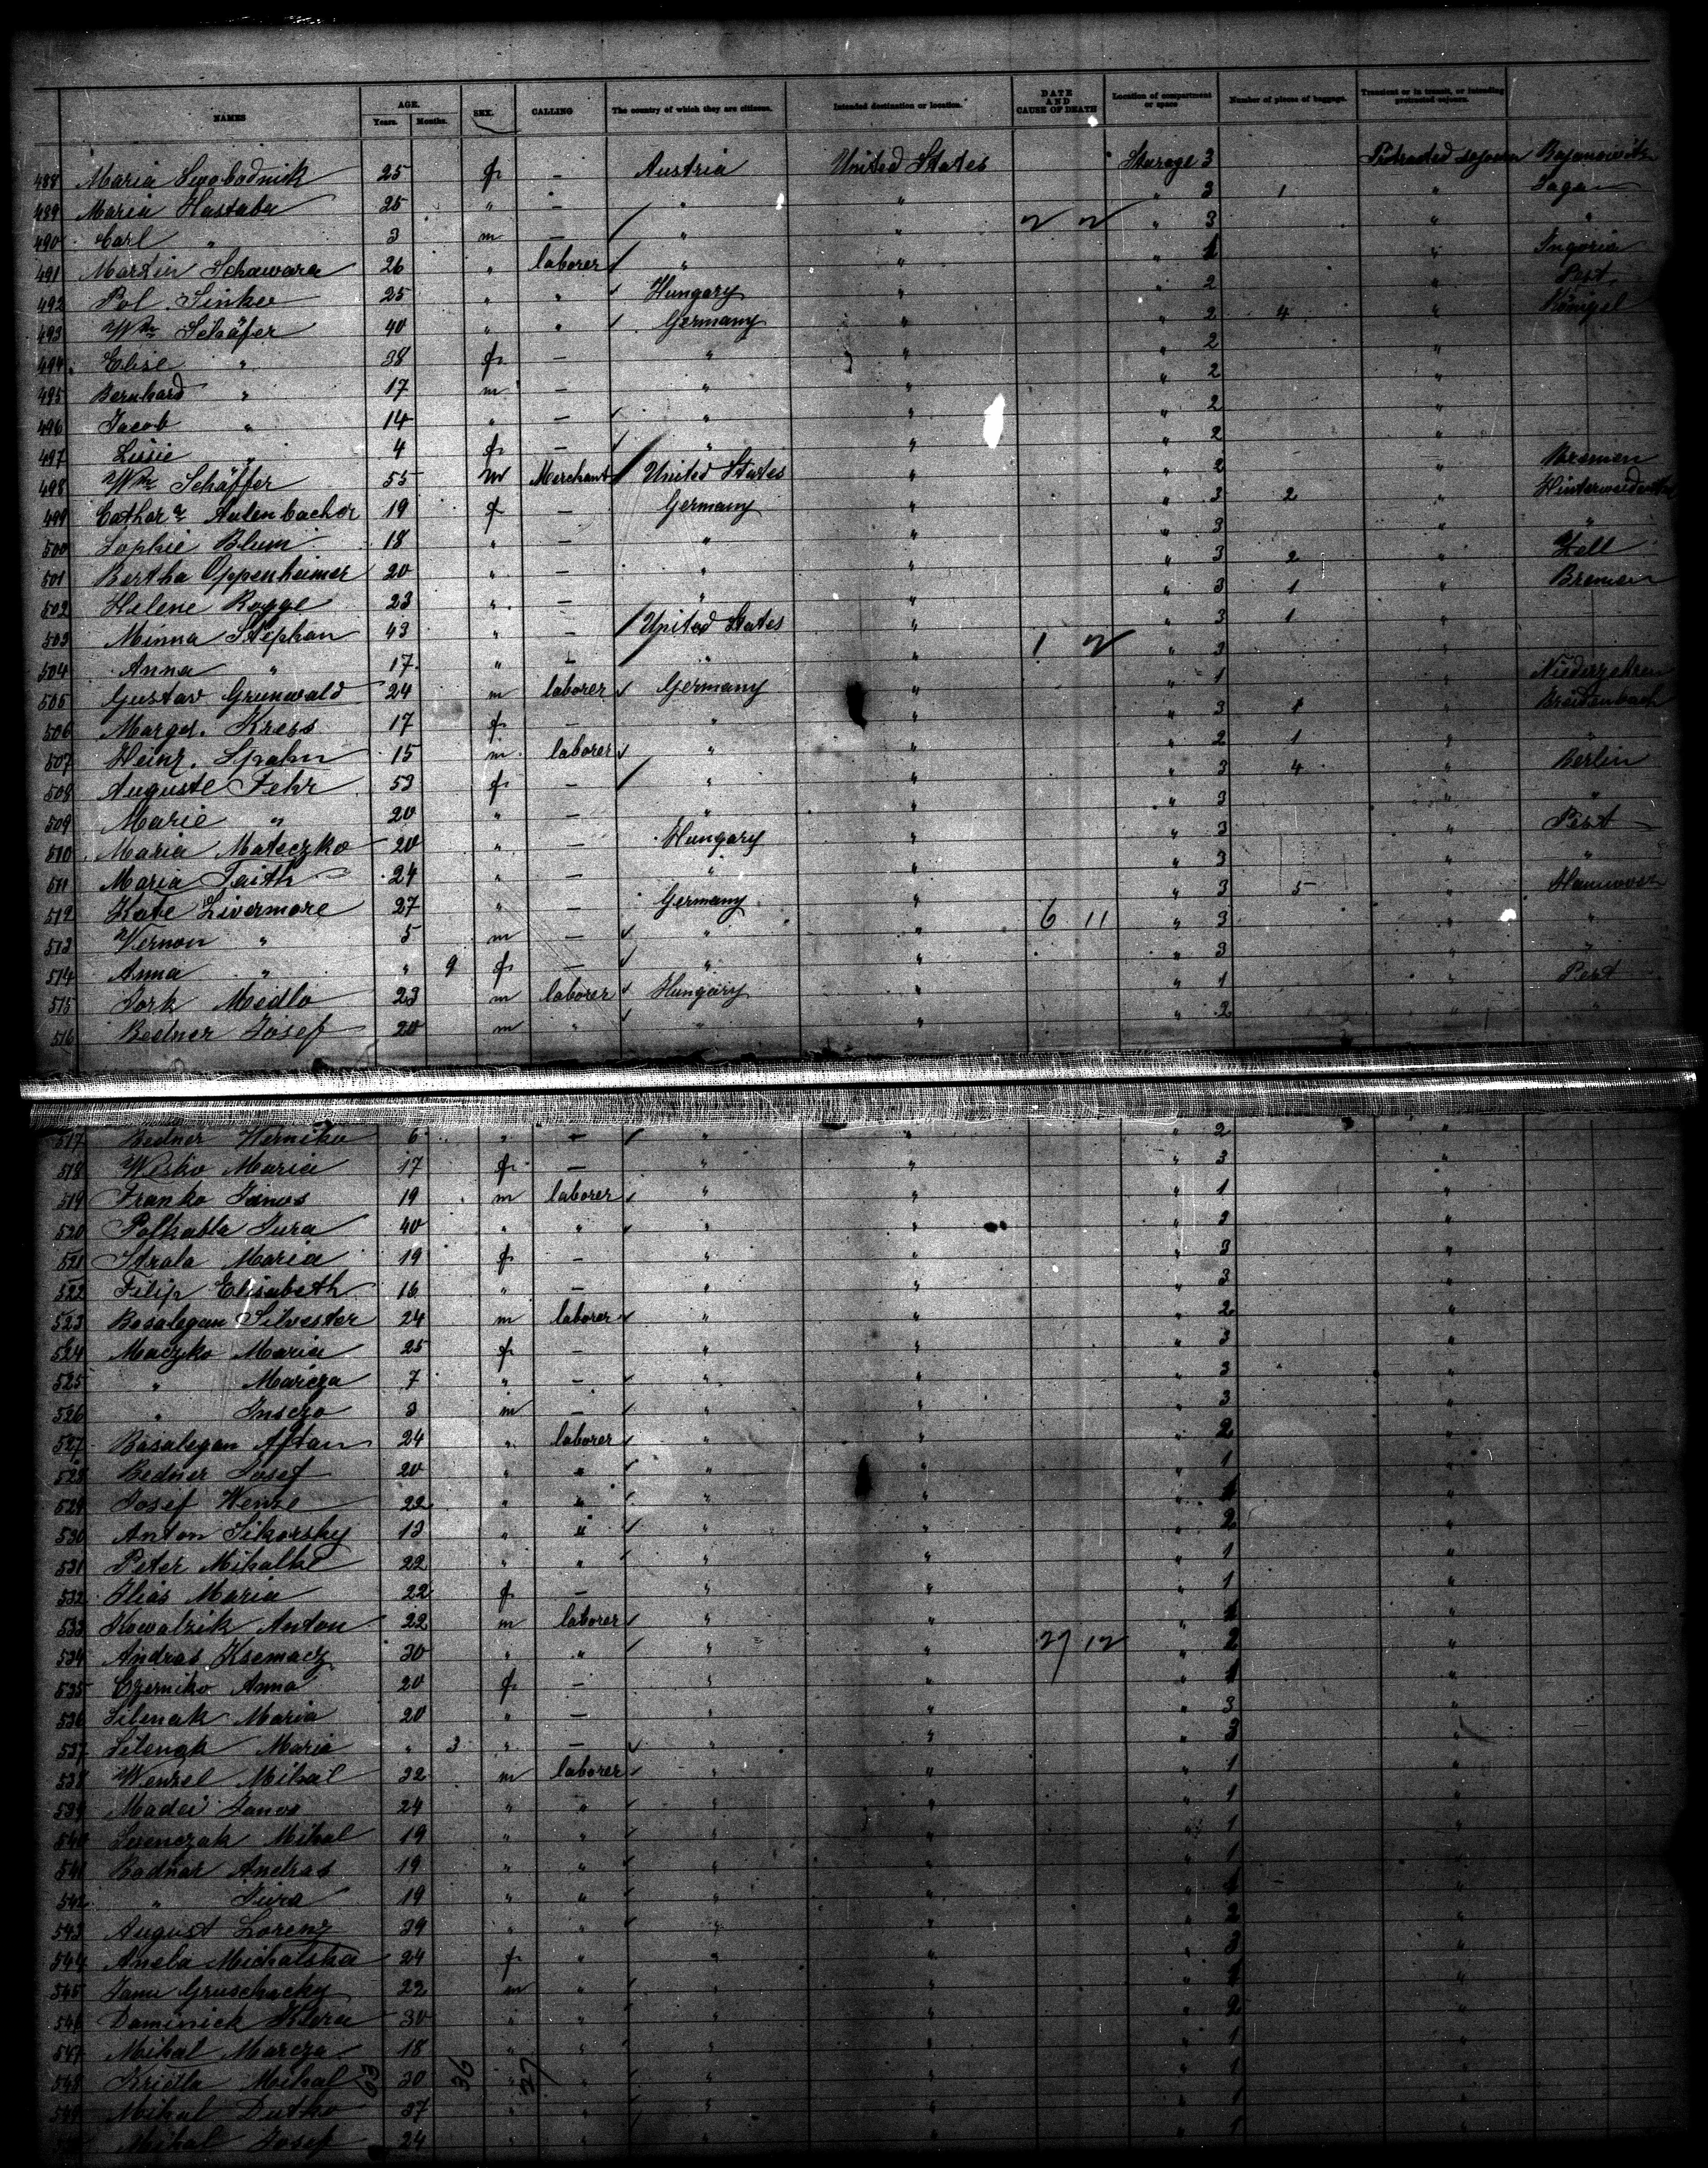 NAMES AGE. Years. Months. SEX. CALLING The country of which they are citizens. Intended destination or location. DATE AND CAUSE OF DEATH Location of compartment or space Number of pieces of baggage. Transient or in transit, or intending protracted sojourn.
488 Maria Swobodnik 25 f — Austria United States Sterage 3 Protracted sojourn
489 Maria Hastaba 25 " — " " " 3 1 " Sagan
490 Carl " 3 m — " " 2 2 " 3 " "
491 Martin Schawara 26 " laborer " " " 1 "
492 Pol Sinker 25 " " Hungary " " 2 " Pest
493 Wm Schäfer 40 " " Germany " " 2 4 "
494 Elise " 38 f — " " " 2 "
495 Bernhard " 17 m — " " " 2 "
496 Jacob " 14 " — " " " 2 "
497 Lisie " 4 f — " " " 2 "
498 Wm Schäffer 55 m Merchant United States " " 2 " Bremen
499 Cathara Aulenbacher 19 f — Germany " " 3 2 "
500 Sophie Blum 18 " — " " " 3 " "
501 Bertha Oppenheimer 20 " — " " " 3 2 " Zell
502 Helene Rogge 23 " — " " " 3 1 " Bremen
503 Minna Stephan 43 " — United States " " 3 1
504 Anna " 17 " — " " 1 2 " 3 "
505 Gustav Grunwald 24 m laborer Germany " " 1 " Niederzehren
506 Margd. Kress 17 f — " " " 3 1 " Breitenbach
507 Heinr. Spahn 15 m laborer " " " 2 1 " "
508 Auguste Fehr 53 f — " " " 3 4 " Berlin
509 Marie " 20 " — " " " 3 " "
510 Maria Mateczko 20 " — Hungary " " 3 " Pest
511 Maria Faith 24 " — " " " 3 " "
512 Kate Livermore 27 " — Germany " " 3 5 " Hannover
513 Vernon " 5 m — " " 6 11 " 3 " "
514 Anna " " 9 f — " " " 3 " "
515 Jork Medlo 23 m laborer Hungary " " 1 " Pest
516 Bedner Josef 20 m " " " " 2 " "
517 Bedner Werniko 6 " — " " " 2 "
518 Wesko Maria 17 f — " " " 3 "
519 Franko Janos 19 m laborer " " " 1 "
520 Polkabla Jura 40 " " " " " 3 "
521 Strala Maria 19 f — " " " 3 "
522 Filip Elisabeth 16 " — " " " 3 "
523 Basalegan Silvester 24 m laborer " " " 2 "
524 Maczko Maria 25 f — " " " 3 "
525 " Maricza 7 " — " " " 3 "
526 " Insczo 3 m — " " " 3 "
527 Basalegan Aftan 24 " laborer " " " 2 "
528 Bedner Josef 20 " " " " " 1 "
529 Josef Wenze 22 " " " " " 1 "
530 Anton Sikorsky 13 " " " " " 2 "
531 Peter Mihalke 22 " " " " " 1 "
532 Ilias Maria 22 f — " " " 1 "
533 Kowalzik Anton 22 m laborer " " " 1 "
534 Andras Ksemacz 30 " " " " 27 12 " 2 "
535 Czerniko Anna 20 f — " " " 1 "
536 Silenak Maria 20 " — " " " 3 "
537 Silenak Maria " 3 " — " " " 3 "
538 Wenzel Mihal 32 m laborer " " " 1 "
539 Madei Janos 24 " " " " " 1 "
540 Swenczak Mihal 19 " " " " " 1 "
541 Bodnar Andras 19 " " " " " 1 "
542 " Jura 19 " " " " " 1 "
543 August Lorenz 39 " " " " " 2 "
544 Anela Michalska 24 f " " " " 3 "
545 Janu Gruschacky 22 m " " " " 1 "
546 Dominick Klera 30 " " " " " 2 "
547 Mihal Marcza 18 " " " " " 1 "
548 Kridla Mihal 30 " " " " " 1 "
549 Mihal Dutko 37 " " " " " 1 "
Mihal Josef 24 " " " " " 1 "
63 36 27